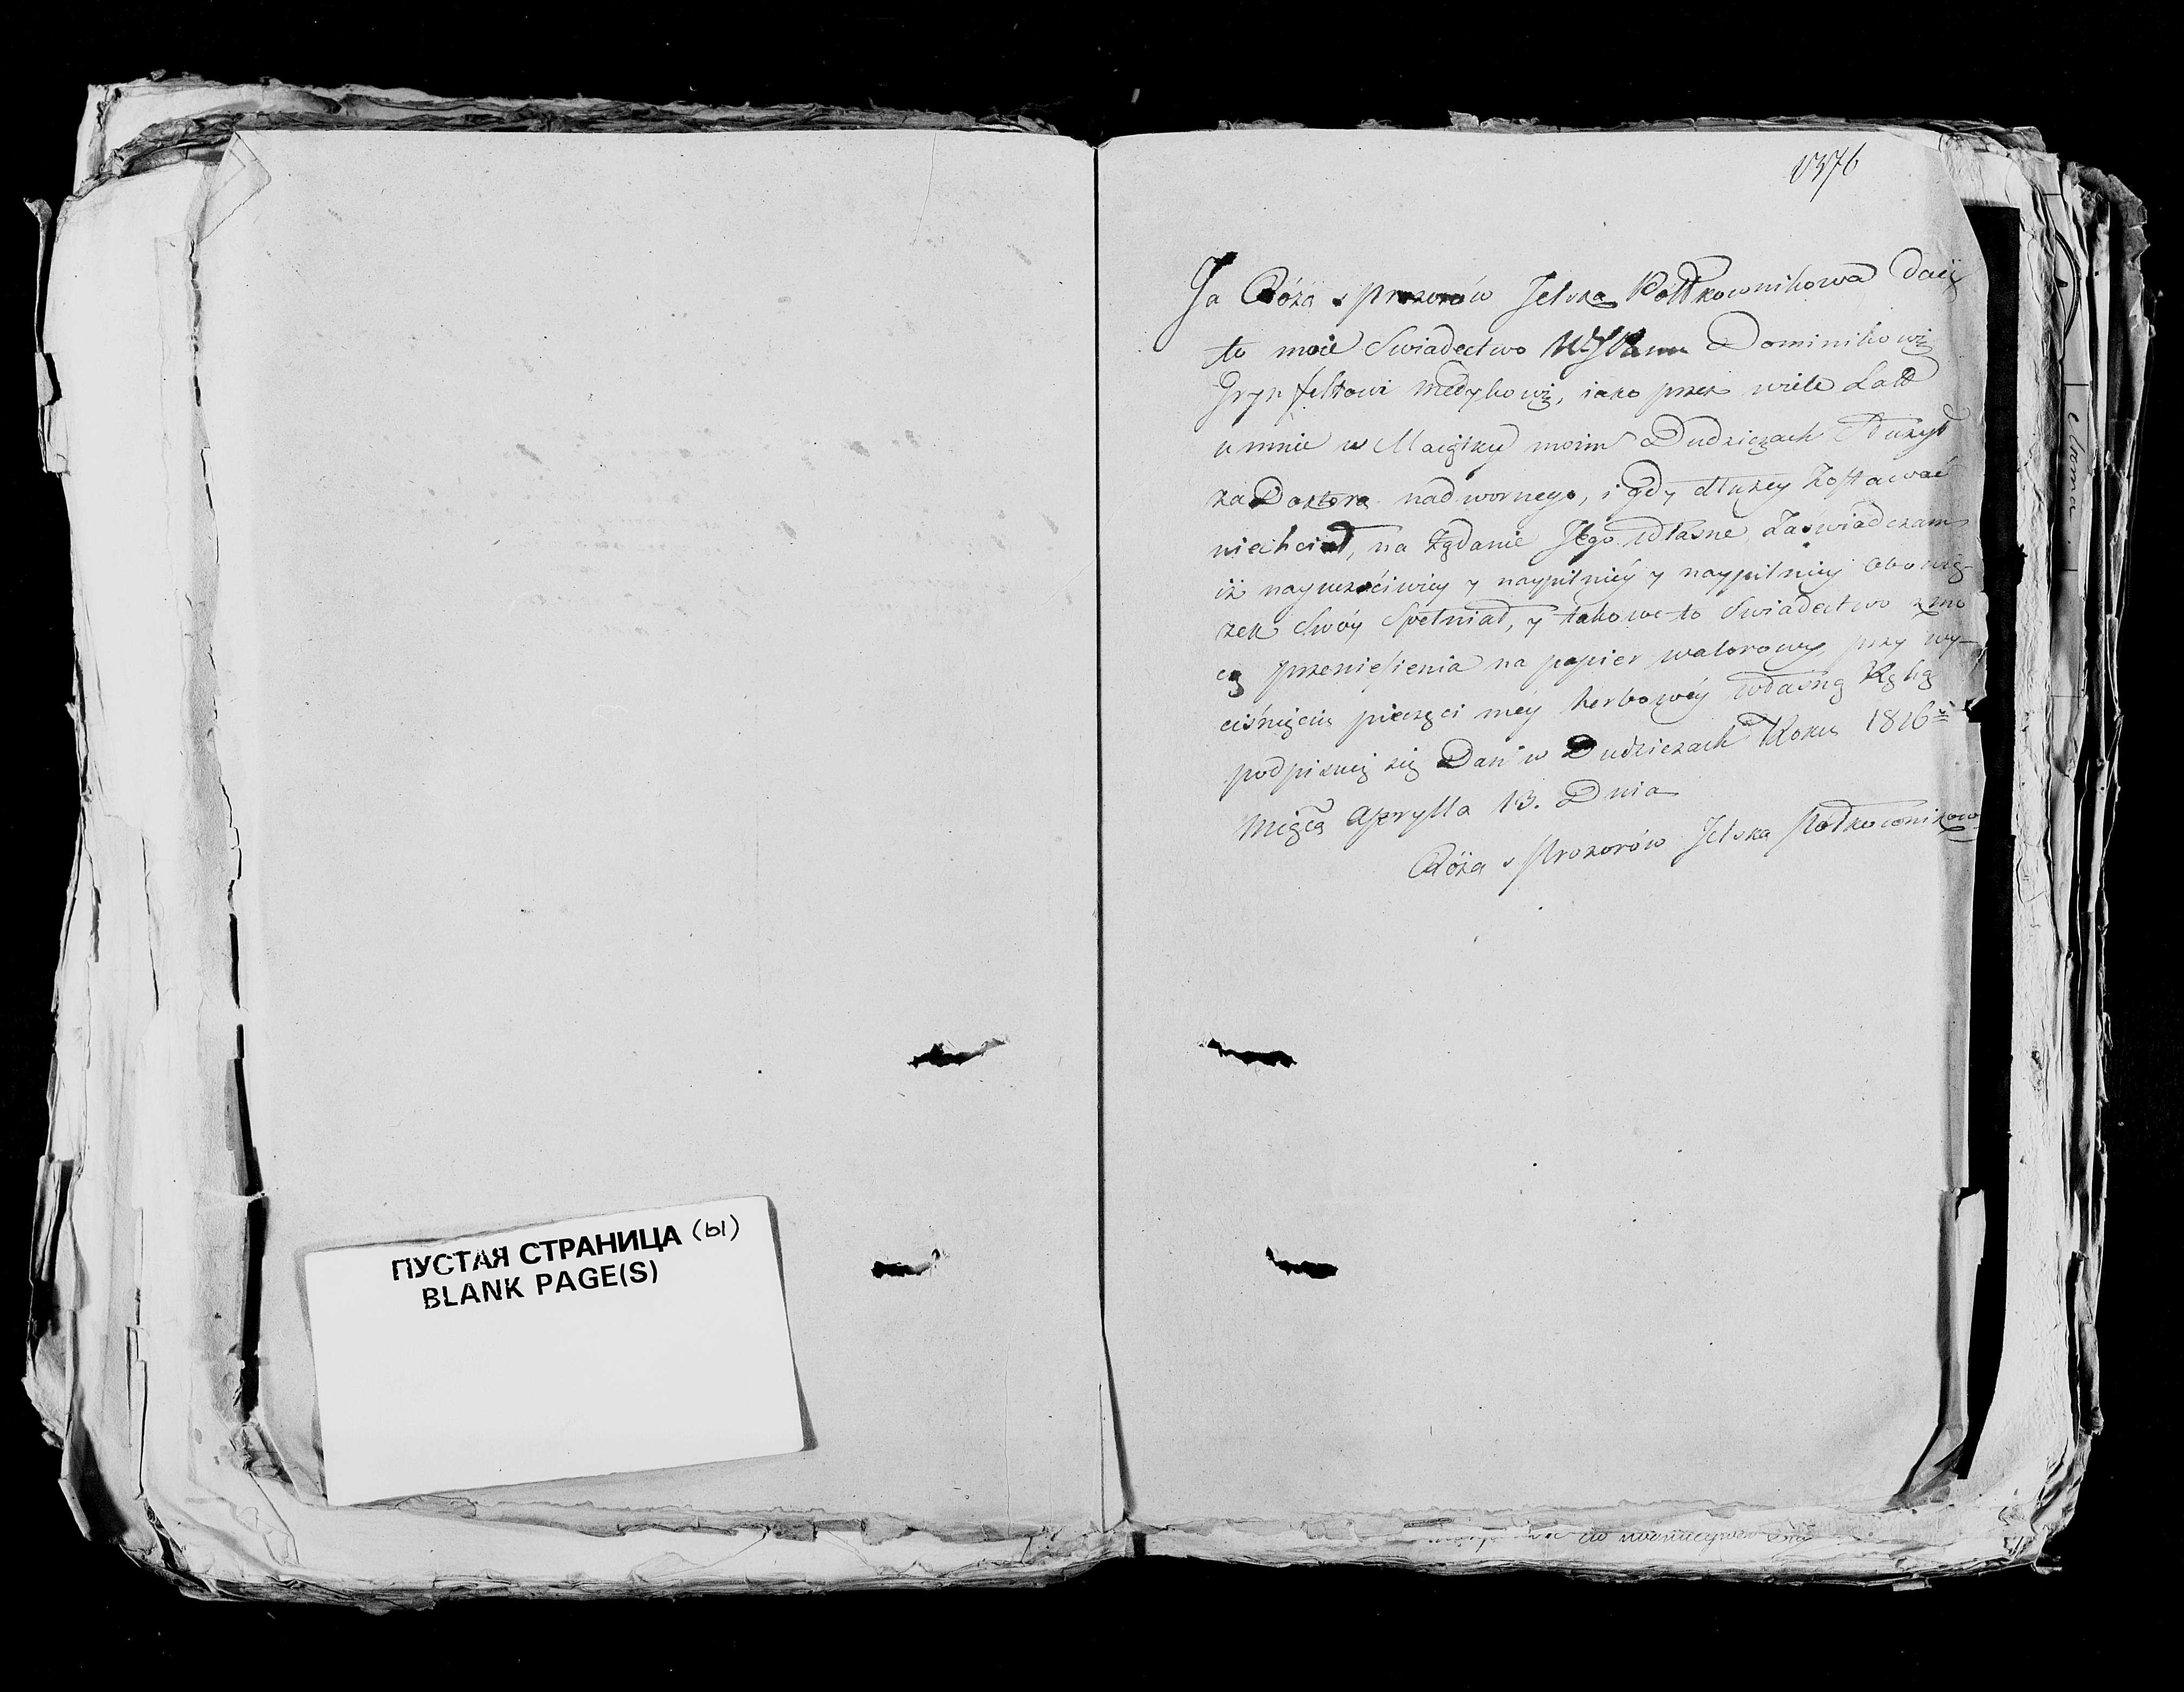 ПУСТАЯ СТРАНИЦА (ы)
BLANK PAGE(S)
1376
Ja Róża s Prozorów Jelska Półkownikowa daię
to moie Swiadectwo WJPanu Dominikowi
Grynfeltowi Medykowi, iako przez wiele Latt
u mnie w Maiątku moim Dudziczach Służył
za Doktora nadwornego, i gdy dłużey zostawać
niechciał, na żądanie Jego własne zaświadczam
iż nayuczciwiey y naypilniéy y naypilniey obowią-
zek Swóy Spełniał, y takowe to Swiadectwo z mo
cą przeniesienia na papier walorowy, przy wy-
ciśnięciu pieczęci méy herbowéy własną Ręką
podpisuię się Dan w Dudziczach Roku 1816
Miąca Aprylla 13. Dnia
Róża s Prozorów Jelska Półkownikow